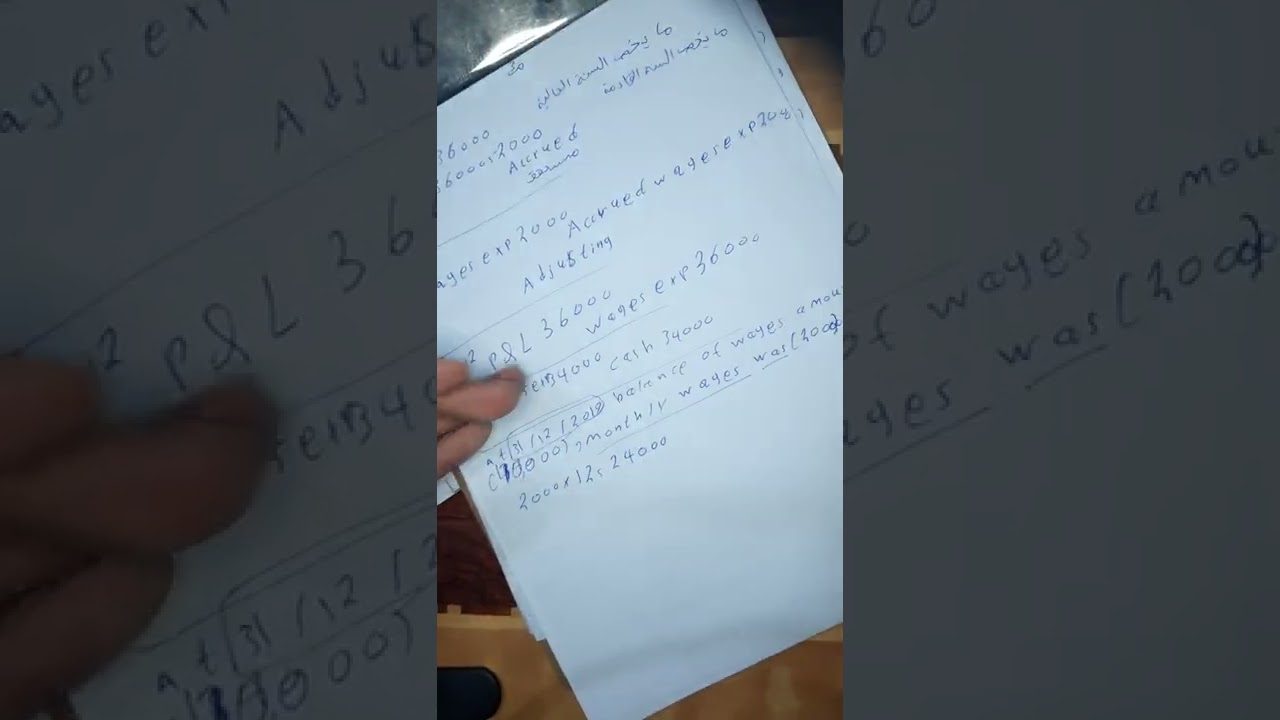 ما يخص السنة الحالية
ما يخص السنة القادمة
36000
36000 - 2000
Accrued
مستحق
wages exp 2000
Accrued wages exp 200
Adjusting
P&L 36000
wages exp 36000
34000 cash 34000
At (31/12/2018) balance of wages amou
, monthly wages was (2000)
2000 x 12 = 24000